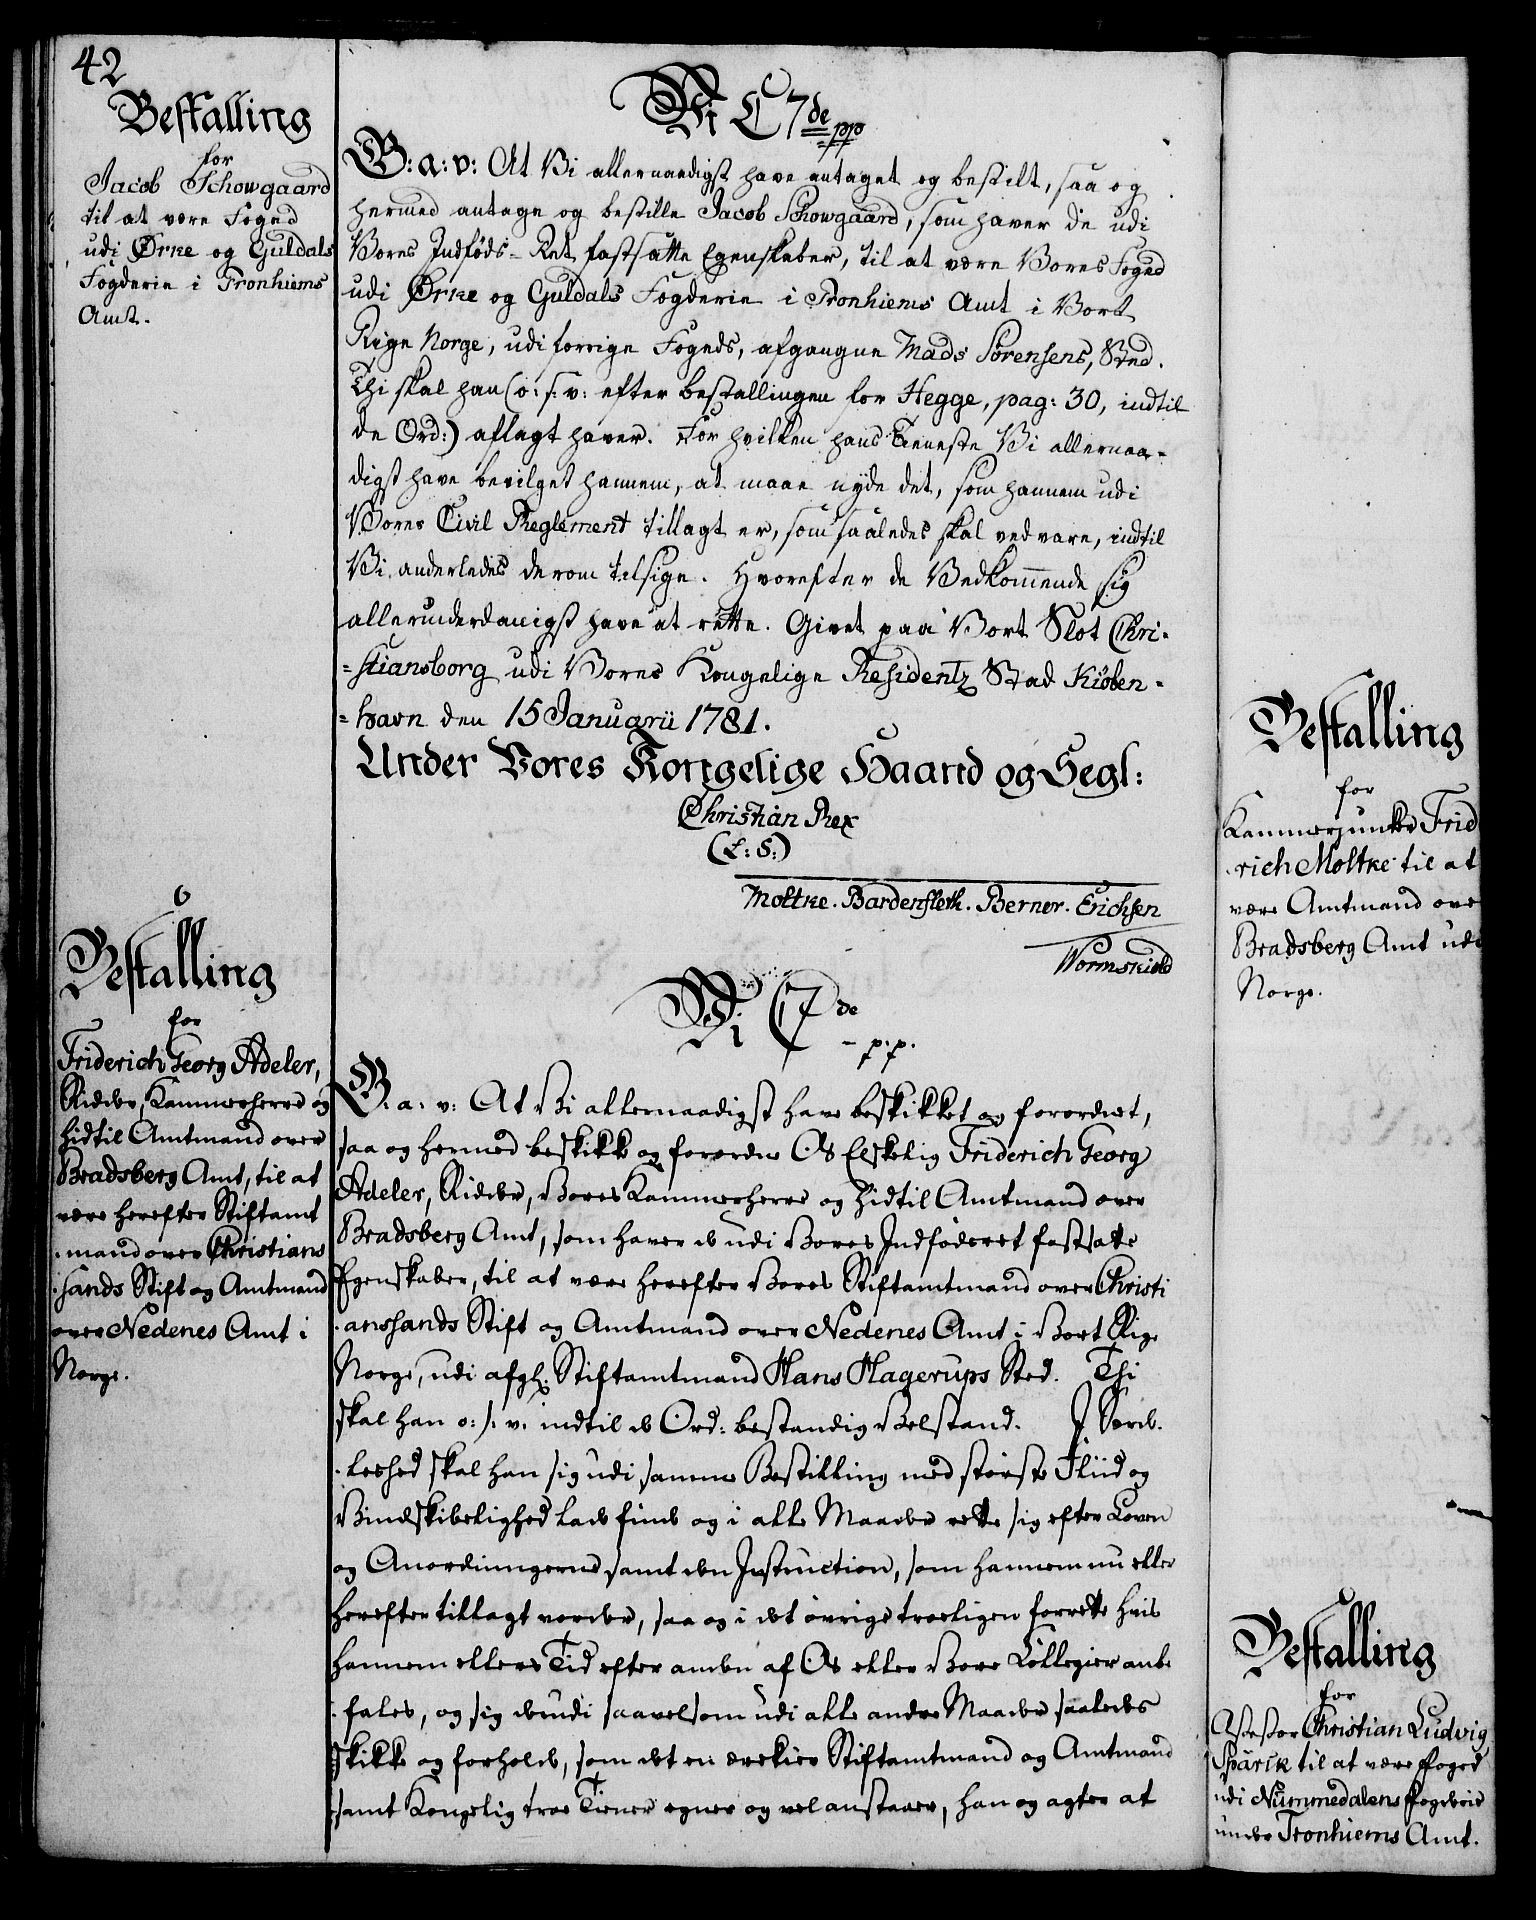 42
Bestalling
for
Jacob Schowgaard
til at være Foged
udi Ørke og Guldals
Fogderie i Tronhiems
Amt.
Vi C 7de pp
G: a: v: At Vi allernaadigst have antaget og bestilt, saa og
hermed antage og bestille Jacob Schowgaard, som haver de udi
Vores Indføds-Ret fastsatte Egenskaber, til at være Vores Foged
udi Ørke og Guldals Fogderie i Tronhiems Amt i Vort
Rige Norge, udi forrige Fogeds, afgangne Mads Sörensens, Sted.
Thi skal han (o: s: v: efter bestallingen for Hegge, pag: 30, indtil
de Ord:) aflagt haver. For hvilken hans Tieneste Vi allernaa-
digst have bevilget hannem, at maae nyde det, som hannem udi
Vores Civil Reglement tillagt er, som saaledes skal vedvare, indtil
Vi anderledes derom tilsige. Hvorefter de Vedkommende sig
allerunderdanigst have at rette. Givet paa Vort Slot Chri-
-stiansborg udi Vores Kongelige Residentz Stad Kiöben-
-havn den 15 Januarii 1781.
Under Vores Kongelige Haand og Segl:
Christian Rex
(L: S:)
Moltke. Bardenfleth. Berner. Erichsen
Wormskiold
6
Bestalling
for
Friderich Georg Adeler,
Ridder, Kammerherre og
hidtil Amtmand over
Bradsberg Amt, til at
være herefter Stiftamt
-mand over Christians
-sands Stift og Amtmand
over Nedenes Amt i
Norge.
Vi C 7de
- p. p.
G. a. v: At Vi allernaadigst have beskikket og forordnet,
saa og hermed beskikke og forordne Os Elskelig Friderich Georg
Adeler, Ridder, Vores Kammerherre og hidtil Amtmand over
Bradsberg Amt, som haver de udi Vores Indföderet fastsatte
Egenskaber, til at være herefter Vores Stiftamtmand over Christi
-anssands Stift og Amtmand over Nedenes Amt i Vort Rige
Norge, udi afgl. Stiftamtmand Hans Hagerups Sted. Thi
skal han o: s: v: indtil de Ord: bestandig Velstand. I Særde-
-leshed skal han sig udi samme Bestilling med störste Fliid og
Vindskibelighed lade finde og i alle Maader rette sig efter Loven
og Anordningerne samt den Instruction, som hannem nu eller
herefter tillagt vorder, saa og i det övrige troeligen forrette hvis
hannem ellers Tid efter anden af Os eller Vore Collegier anbe
-fales, og sig derudi saavelsom udi alle andre Maader saaledes
skikke og forholde, som det en ærekier Stiftamtmand og Amtmand
samt Kongelig troe Tiener egner og vel anstaaer, han og agter at
Bestalling
for
Kammerjunker Frid
rich Moltke til at
være Amtmand ove
Bradsberg Amt udi
Norge.
Bestalling
for
Assessor Christian Ludvig
Spärck til at være Foged
udi Nummedalens Fogderie
under Tronhiems Amt.